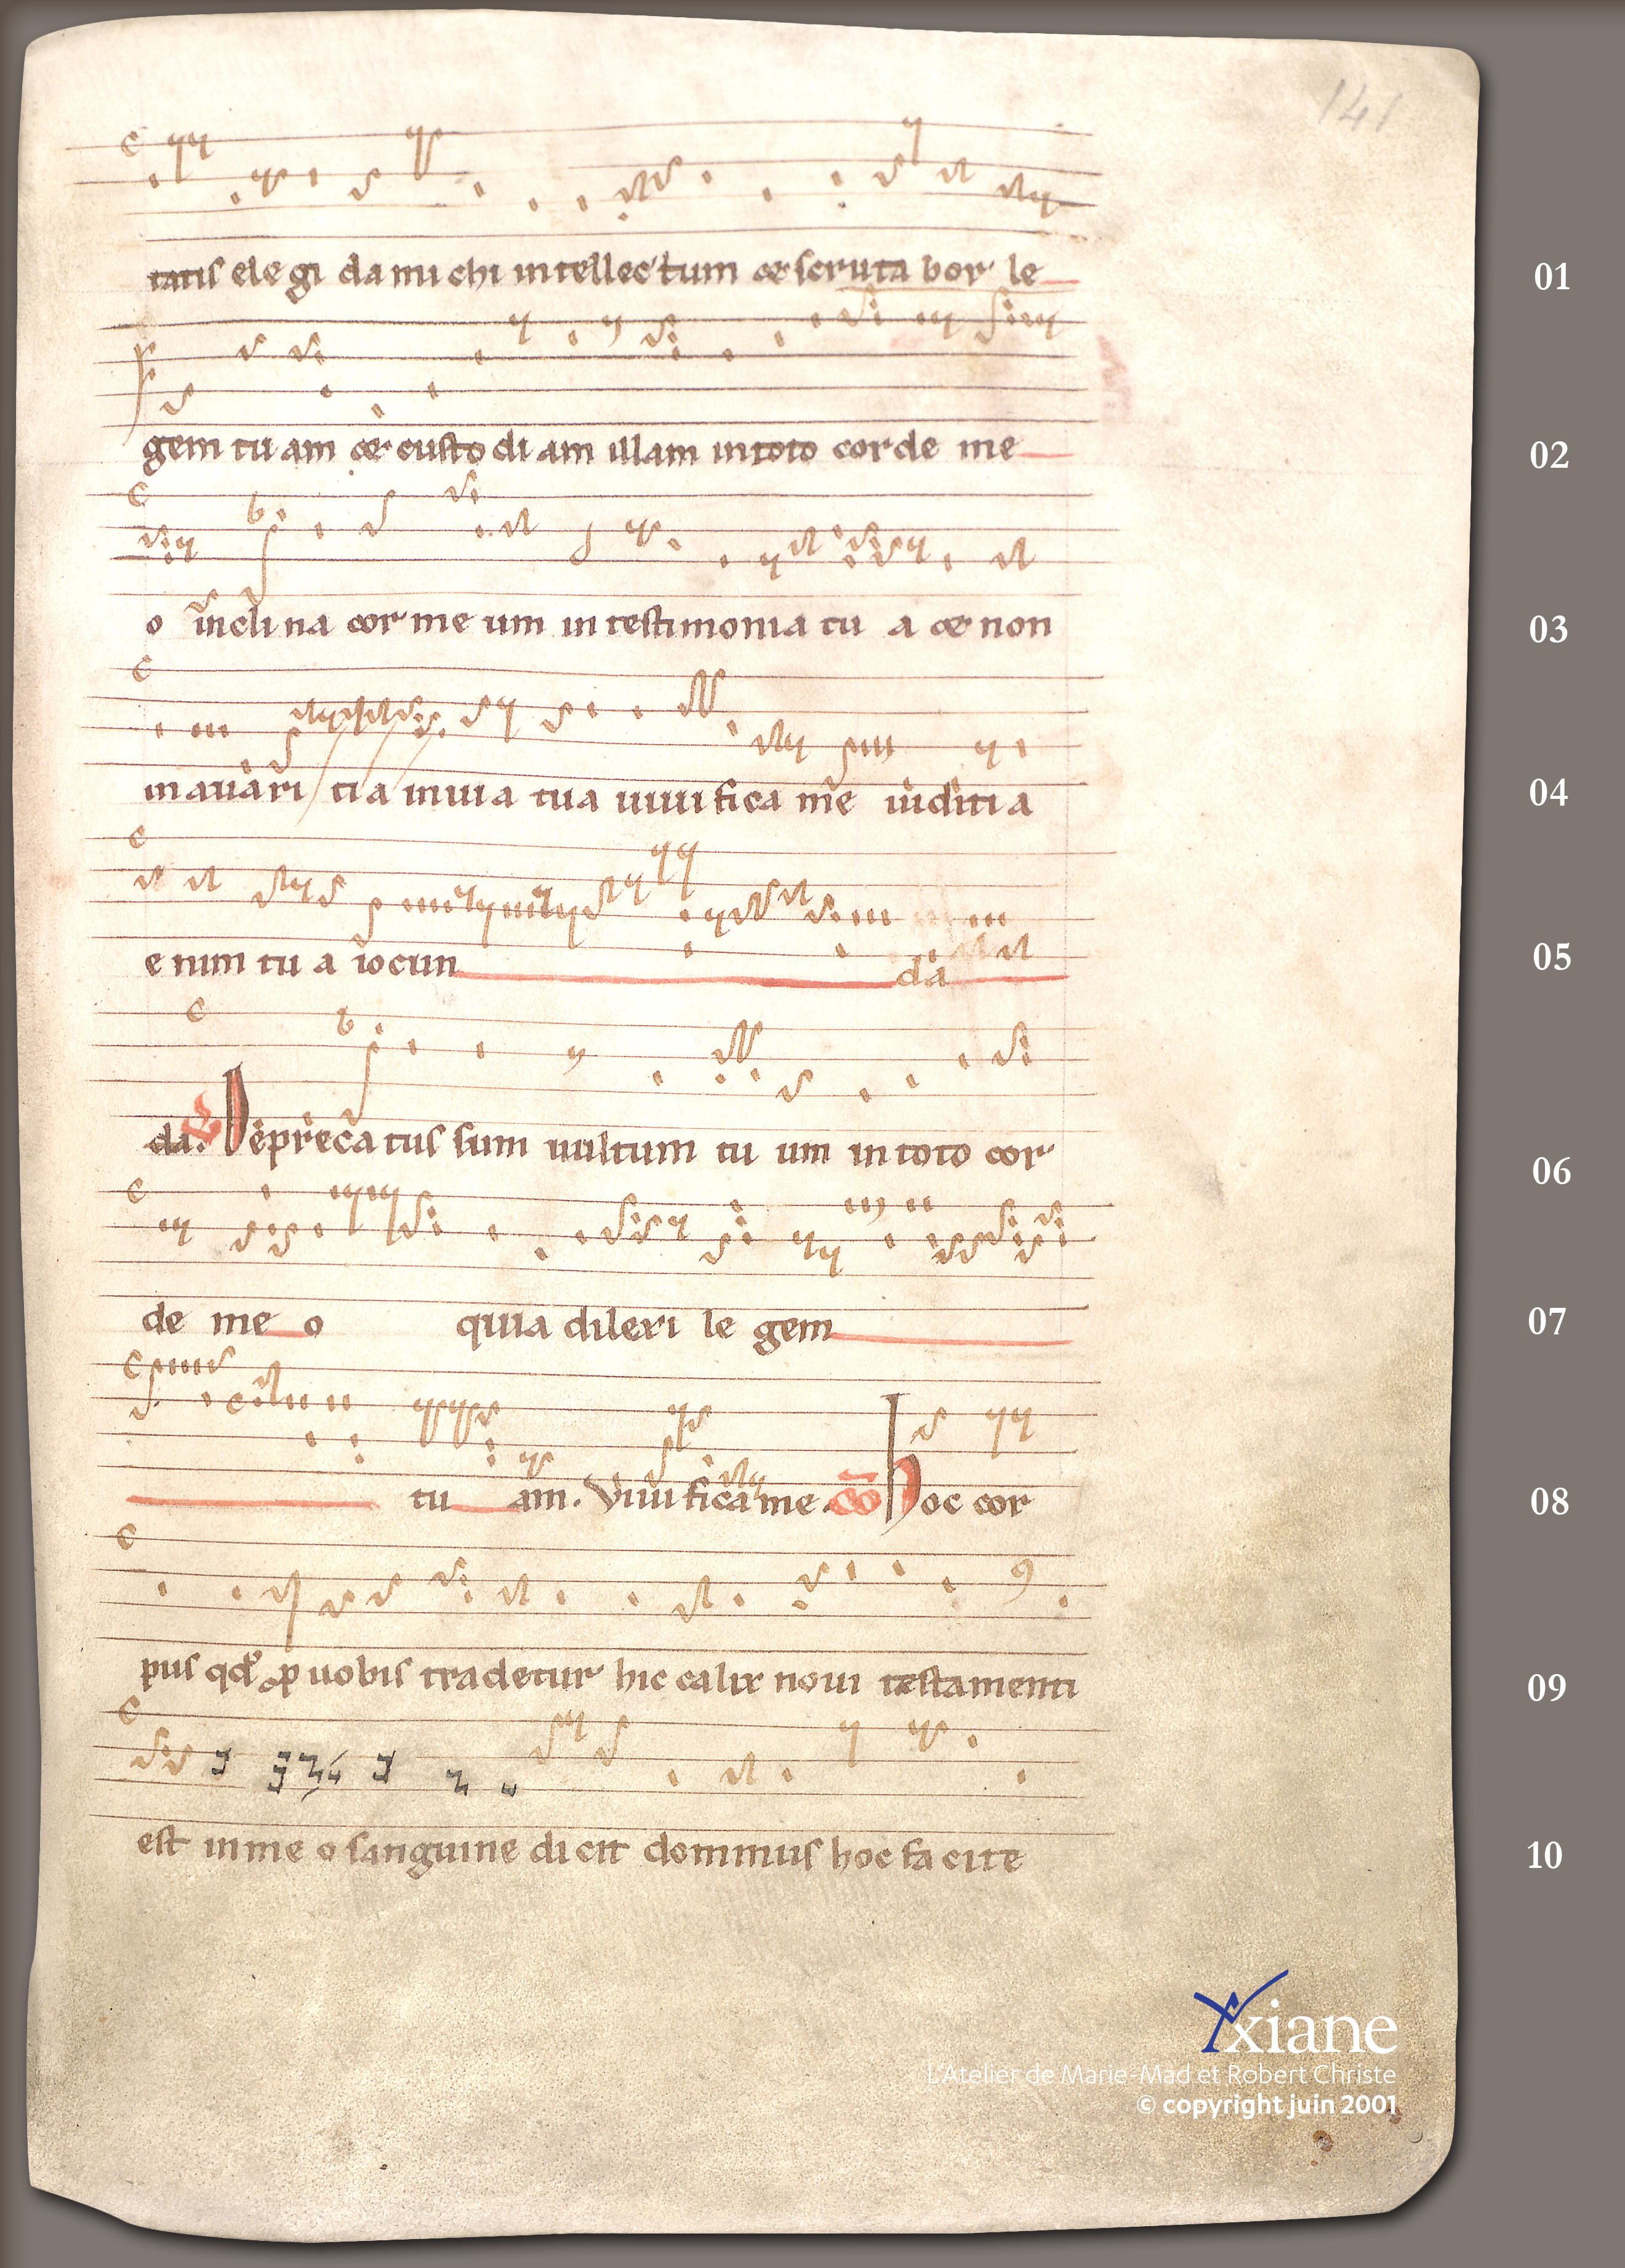 141
tatis ele gi da mi chi intellectum et scruta bor le 01
gem tu am et custo di am illam in toto corde me 02
o inclina cor me um in testimonia tu a et non 03
in avari ti a in uia tua uiui fica me iuditi a 04
enim tu a iocun da 05
da. V Deprecatus sum uultum tu um in toto cor 06
de me o quia dilexi le gem 07
tu am. Viui fica me. co Hoc cor 08
pus qd p uobis tradetur hic calix noui testamenti 09
est in me o sanguine di cit dominus hoc facite 10
Yxiane
L'Atelier de Marie-Mad et Robert Christe
© copyright juin 2001